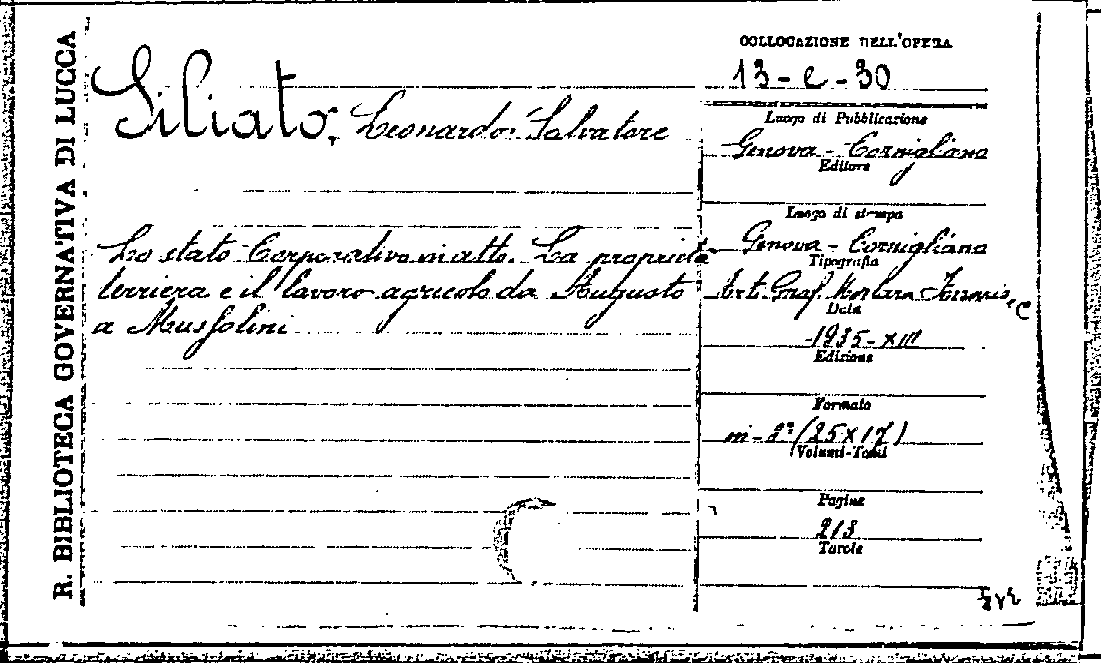 R. BIBLIOTECA GOVERNATIVA DI LUCCA
Siliato, Leonardo Salvatore
Lo stato Corporativo in atto. La proprietà
terriera e il lavoro agricolo da Augusto
a Mussolini
COLLOCAZIONE DELL'OPERA
13-e-30
Luogo di Pubblicazione
Genova - Cornigliano
Editore
Luogo di stampa
Genova - Cornigliano
Tipografia
Arti Graf.
Data
1935-XIII
Edizione
Formato
in-8º (25x17)
Volumi-Tomi
Pagine
213
Tavole